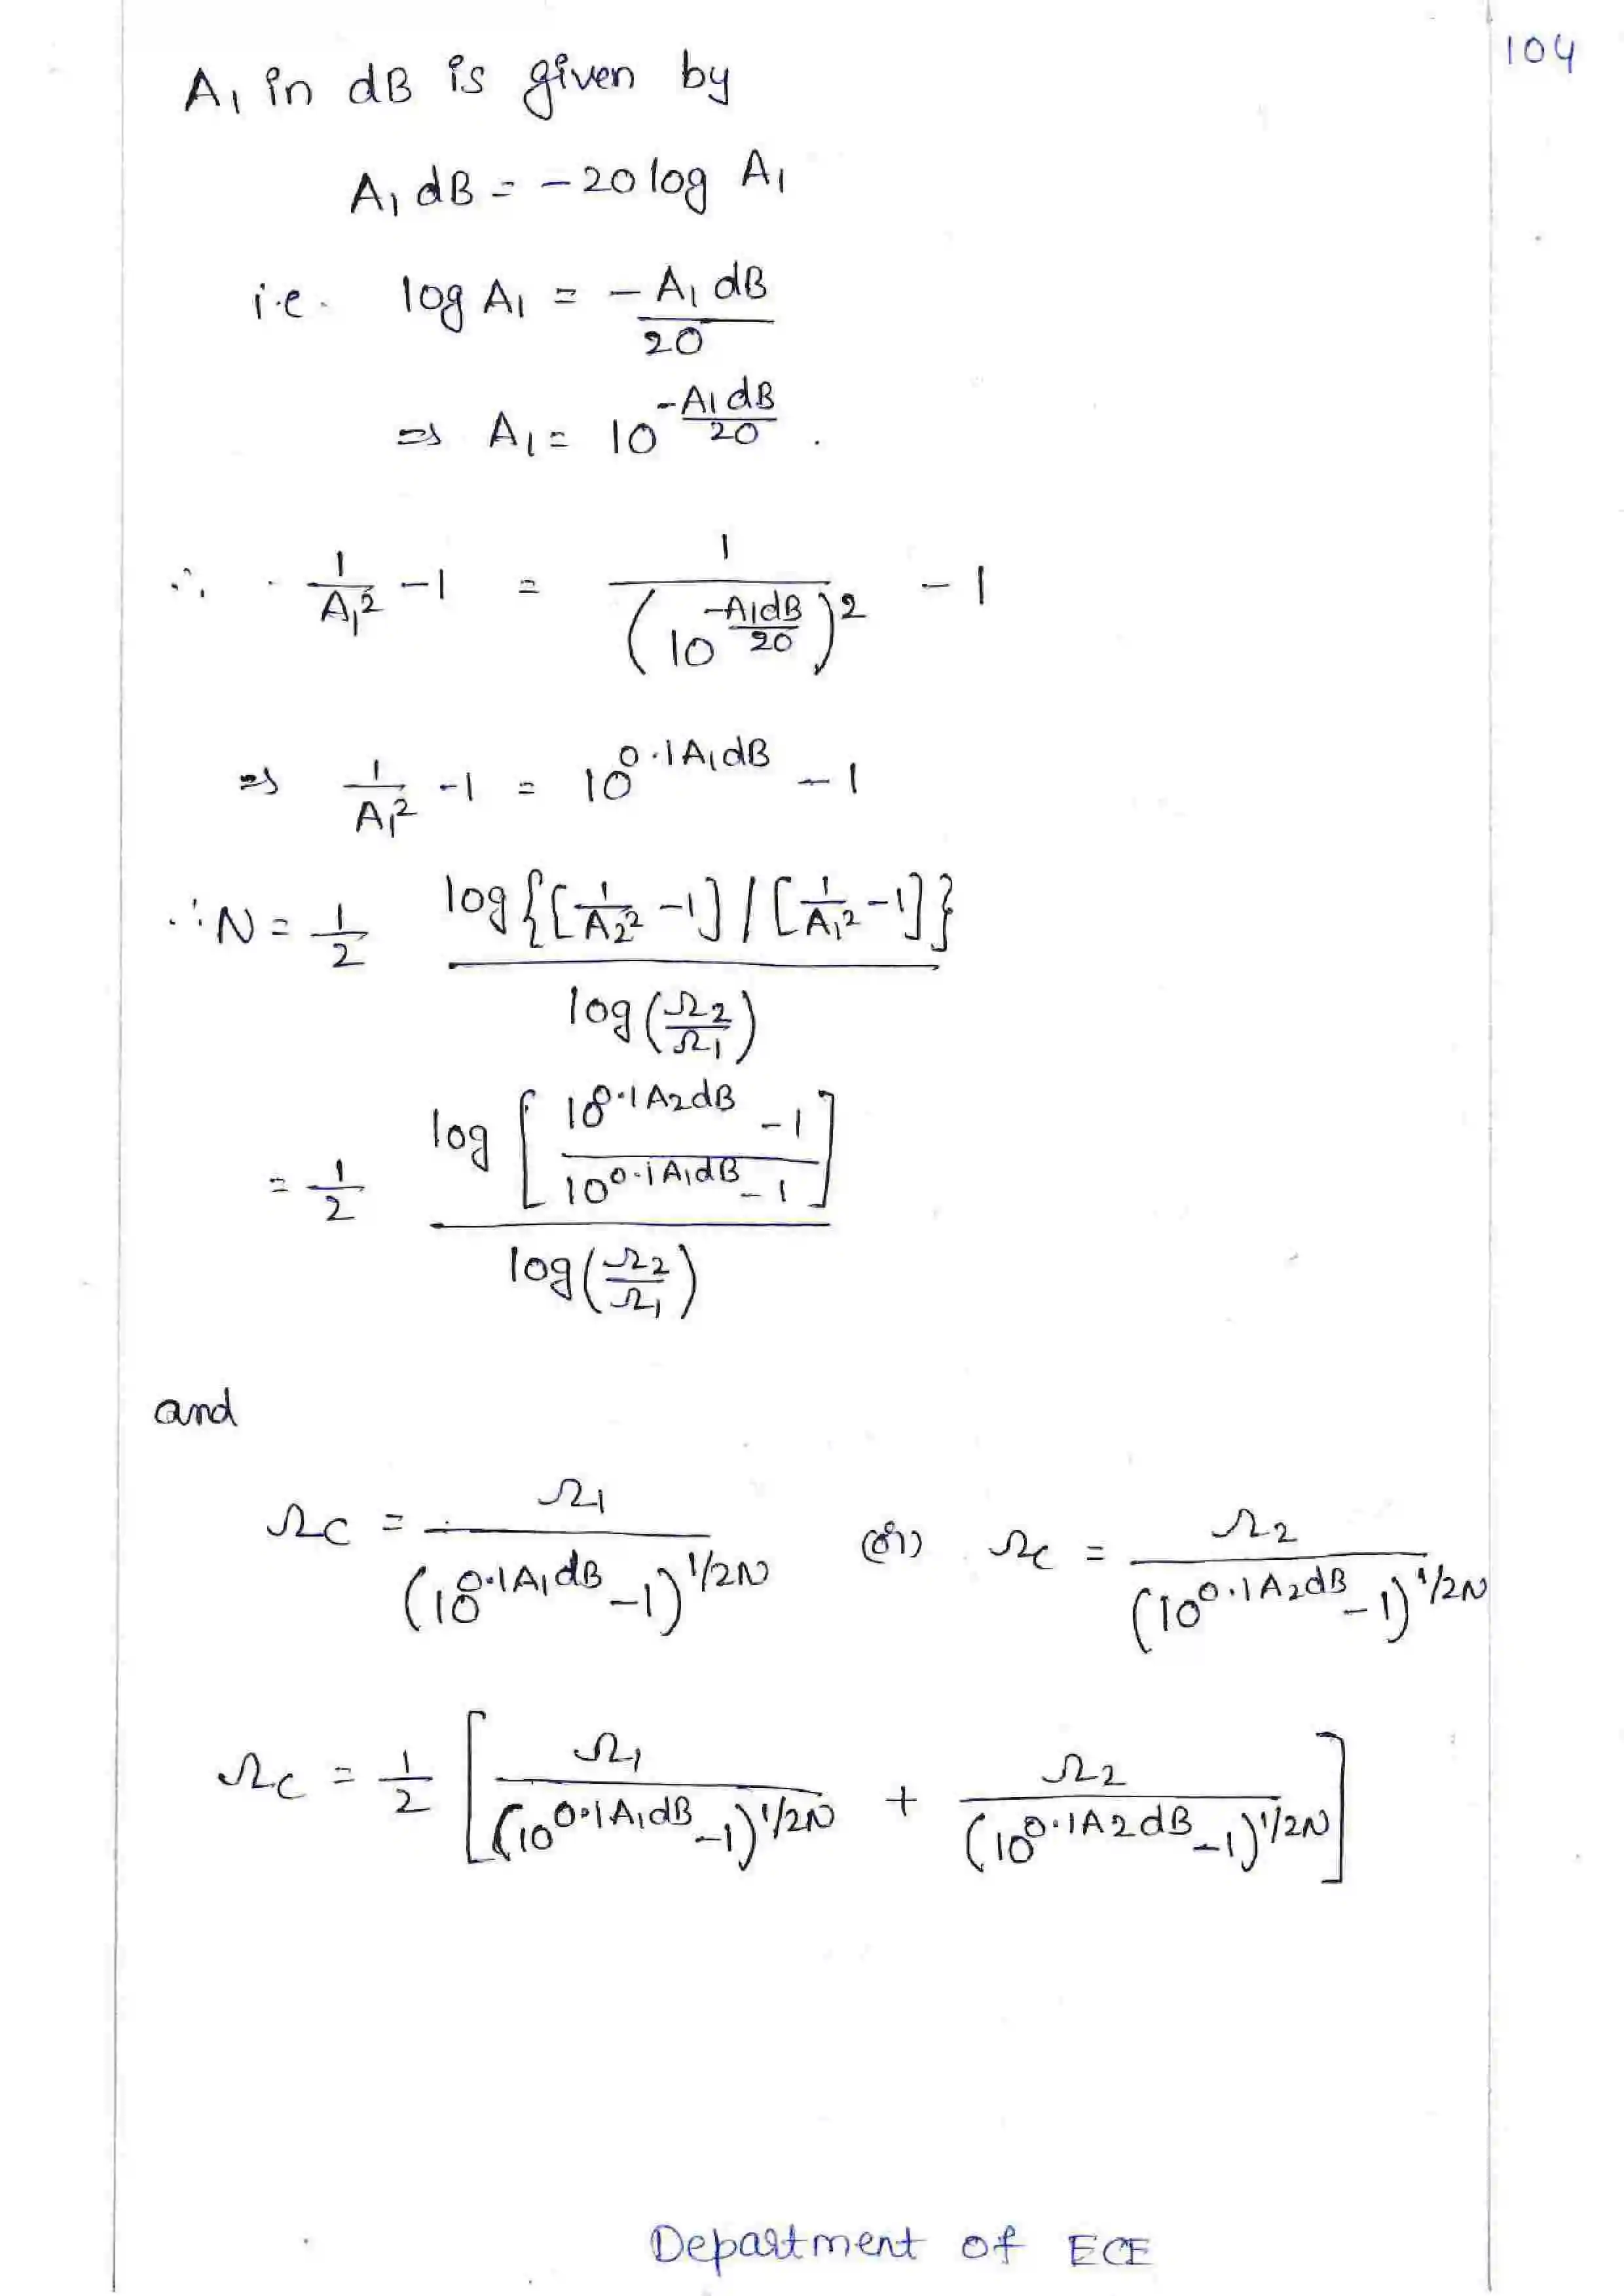 104
A₁ in dB is given by
A₁ dB = -20 log A₁
i.e. log A₁ = -A₁ dB / 20
⇒ A₁ = 10^(-A₁ dB / 20).
∴ 1/A₁² - 1 = 1 / (10^(-A₁dB / 20))² - 1
⇒ 1/A₁² - 1 = 10^(0.1A₁dB) - 1
∴ N = 1/2 log{[1/A₂² - 1] / [1/A₁² - 1]} / log(Ω₂/Ω₁)
= 1/2 log[(10^(0.1A₂dB) - 1) / (10^(0.1A₁dB) - 1)] / log(Ω₂/Ω₁)
and
Ωc = Ω₁ / (10^(0.1A₁dB) - 1)^(1/2N) (or) Ωc = Ω₂ / (10^(0.1A₂dB) - 1)^(1/2N)
Ωc = 1/2 [Ω₁ / (10^(0.1A₁dB) - 1)^(1/2N) + Ω₂ / (10^(0.1A2dB) - 1)^(1/2N)]
Department of ECE